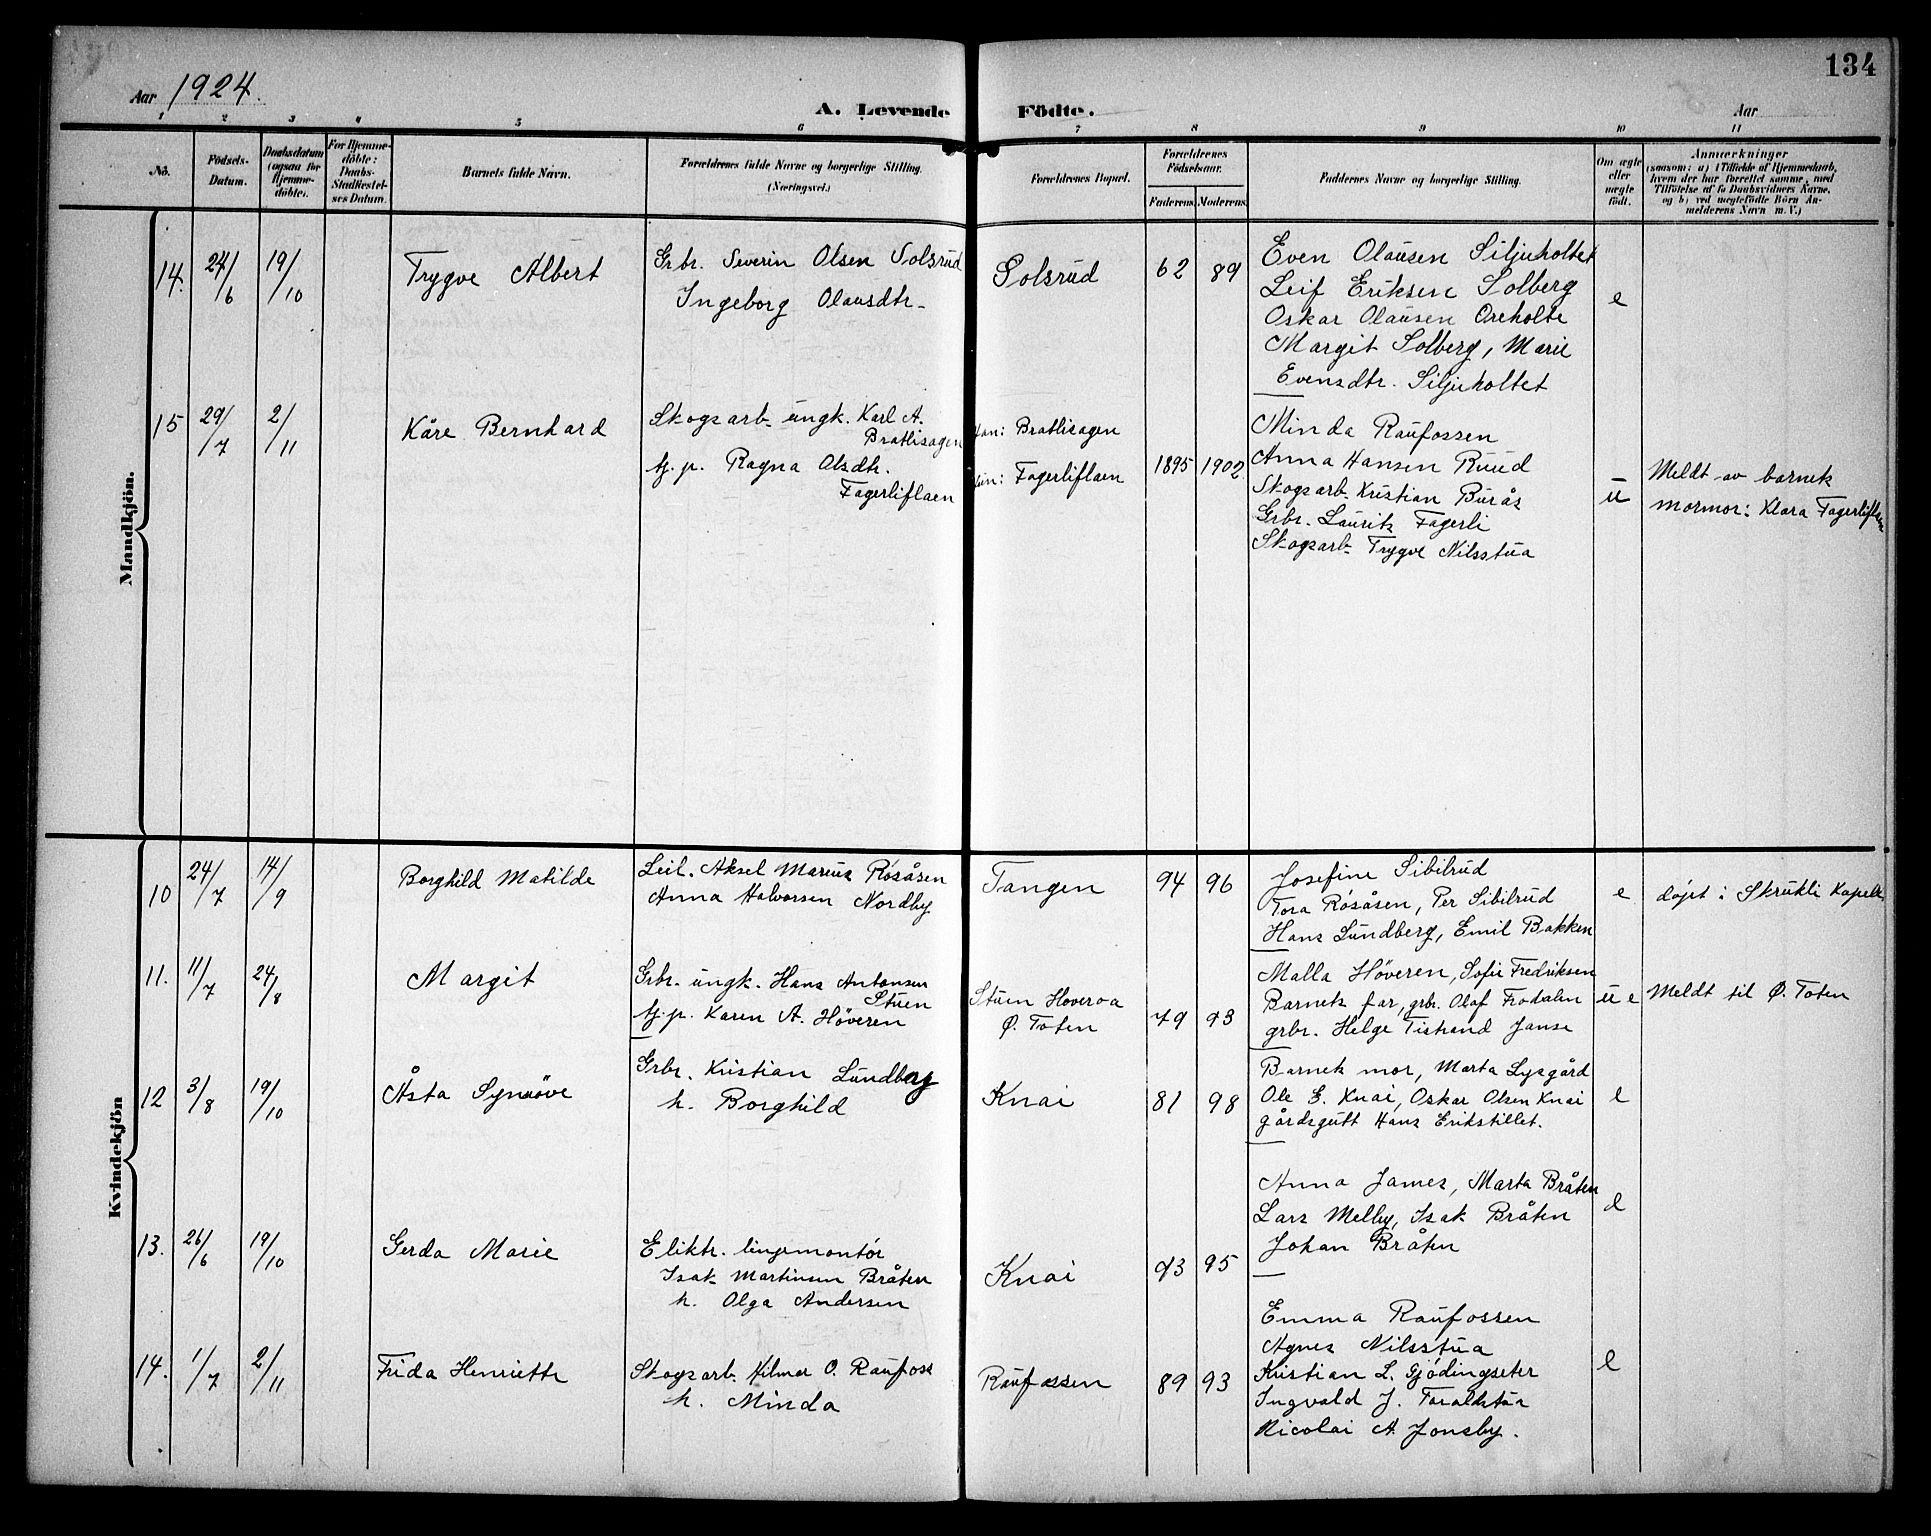 134
Aar 1924.
A. Levende Födte.
Aar
1 2 3 4 5 6 7 8 9 10 11
No.
Födsels-Datum.
Daabsdatum (ogsaa for Hjemme-döbte).
For Hjemme-döbte: Daabs-Stadfæstel-ses Datum.
Barnets fulde Navn.
Forældrenes fulde Navne og borgerlige Stilling.
(Næringsvei.)
Forældrenes Bopæl.
Forældrenes Födselsaar.
Faderens. Moderens.
Faddernes Navne og borgerlige Stilling.
Om ægte eller uægte födt.
Anmærkninger
(saasom: a) i Tilfælde af Hjemmedaab,
hvem der har forrettet samme, med
Tilföielse af to Daabsvidners Navne,
og b) ved uægtefödte Börn An-
melderens Navn m. V.)
Mandkjön.
14. 24/6 19/10 Trygve Albert
Grbr. Severin Olsen Solsrud
Ingeborg Olausdtr.
Solsrud 62 89
Even Olausen Siljuholtet
Leif Eriksen Solberg
Oskar Olausen Oreholte
Margit Solberg, Marie
Evensdtr. Siljuholtet
e
15 29/7 2/11 Kåre Bernhard
Skogsarb. ungk. Karl A.
Bratlisagen
tj.p. Ragna Olsdtr.
Fagerliflaen
Han: Bratlisagen
Hun: Fagerliflaen
1895 1902
Minda Raufossen
Anna Hansen Ruud
Skogsarb. Kristian Burås
Grbr. Laurits Fagerli
Skogsarb. Trygve Nilsstua
u
Meldt av barnets
mormor: Klara Fagerliflaen
Kvindekjön
10 24/7 14/9 Borghild Matilde
Leil. Aksel Marius Røsåsen
Anna Halvorsen Nordby
Tangen 94 96
Josefine Sibilrud
Tora Røsåsen, Per Sibilrud
Hans Lundberg, Emil Bakken
e
døpt i Skrukli Kapell
11. 11/7 24/8 Margit
Grbr. ungk. Hans Antonsen
Stuen
tj.p. Karen A. Høveren
Stuen Hoveroa
Ø. Toten
79 93
Malla Høveren, Sofie Fredriksen
Barnets far, grbr. Olaf Frodalen
grbr. Helge Tistrand
u e
Meldt til Ø. Toten
12 3/8 19/10 Åsta Synnöve
Grbr. Kristian Lundberg
h. Borghild
Knai 81 98
Barnets mor, Marta Lysgård
Ole E. Knai, Oskar Olsen Knai
gårdsgutt Hans Erikstillet.
e
13. 26/6 19/10 Gerda Marie
Elektr. linjemontör
Isak Martinsen Bråten
h. Olga Andersen
Knai 93 95
Anna James, Marta Bråten
Lars Melby, Isak Bråten
Johan Bråten
e
14. 1/7 2/11 Frida Henriette
Skogsarb. Hilmar O. Raufoss
h. Minda
Raufossen 89 93
Emma Raufossen
Agnes Nilsstua
Kristian L. Gjødingseter
Ingvald J. Toraldstua
Nicolai A. Jonsby.
e